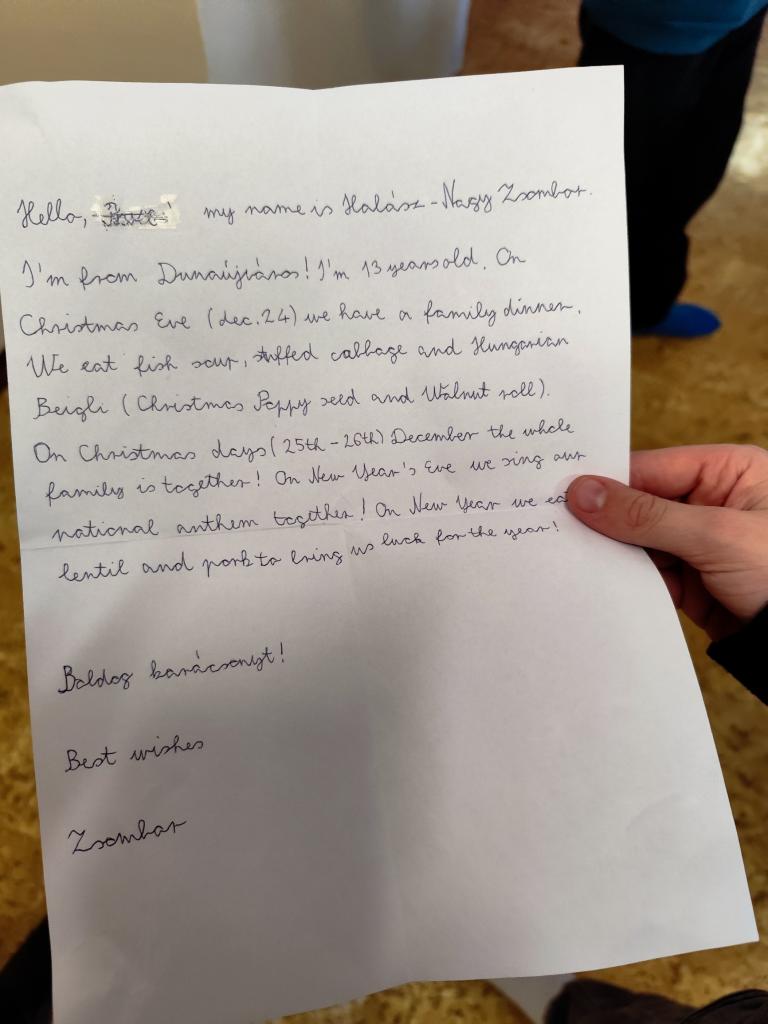 Hello, my name is Halász-Nagy Zsombor.
I'm from Dunaújváros! I'm 13 years old. On
Christmas Eve (dec. 24) we have a family dinner.
We eat fish sour, stuffed cabbage and Hungarian
Beigli (Christmas Poppy seed and Walnut roll).
On Christmas days (25th-26th) December the whole
family is together! On New Year's Eve we sing our
national anthem together! On New Year we eat
lentil and pork to bring us luck for the year!
Boldog karácsonyt!
Best wishes
Zsombor